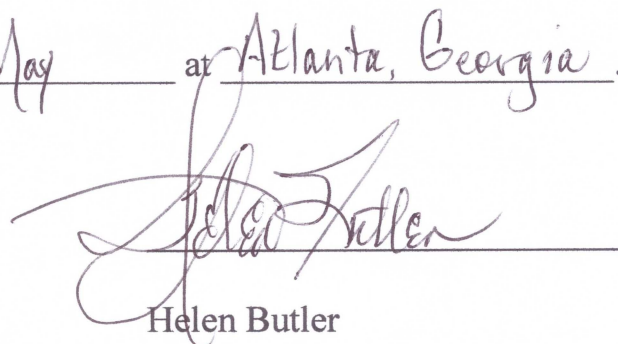 May at Atlanta, Georgia.
Helen Butler
Helen Butler